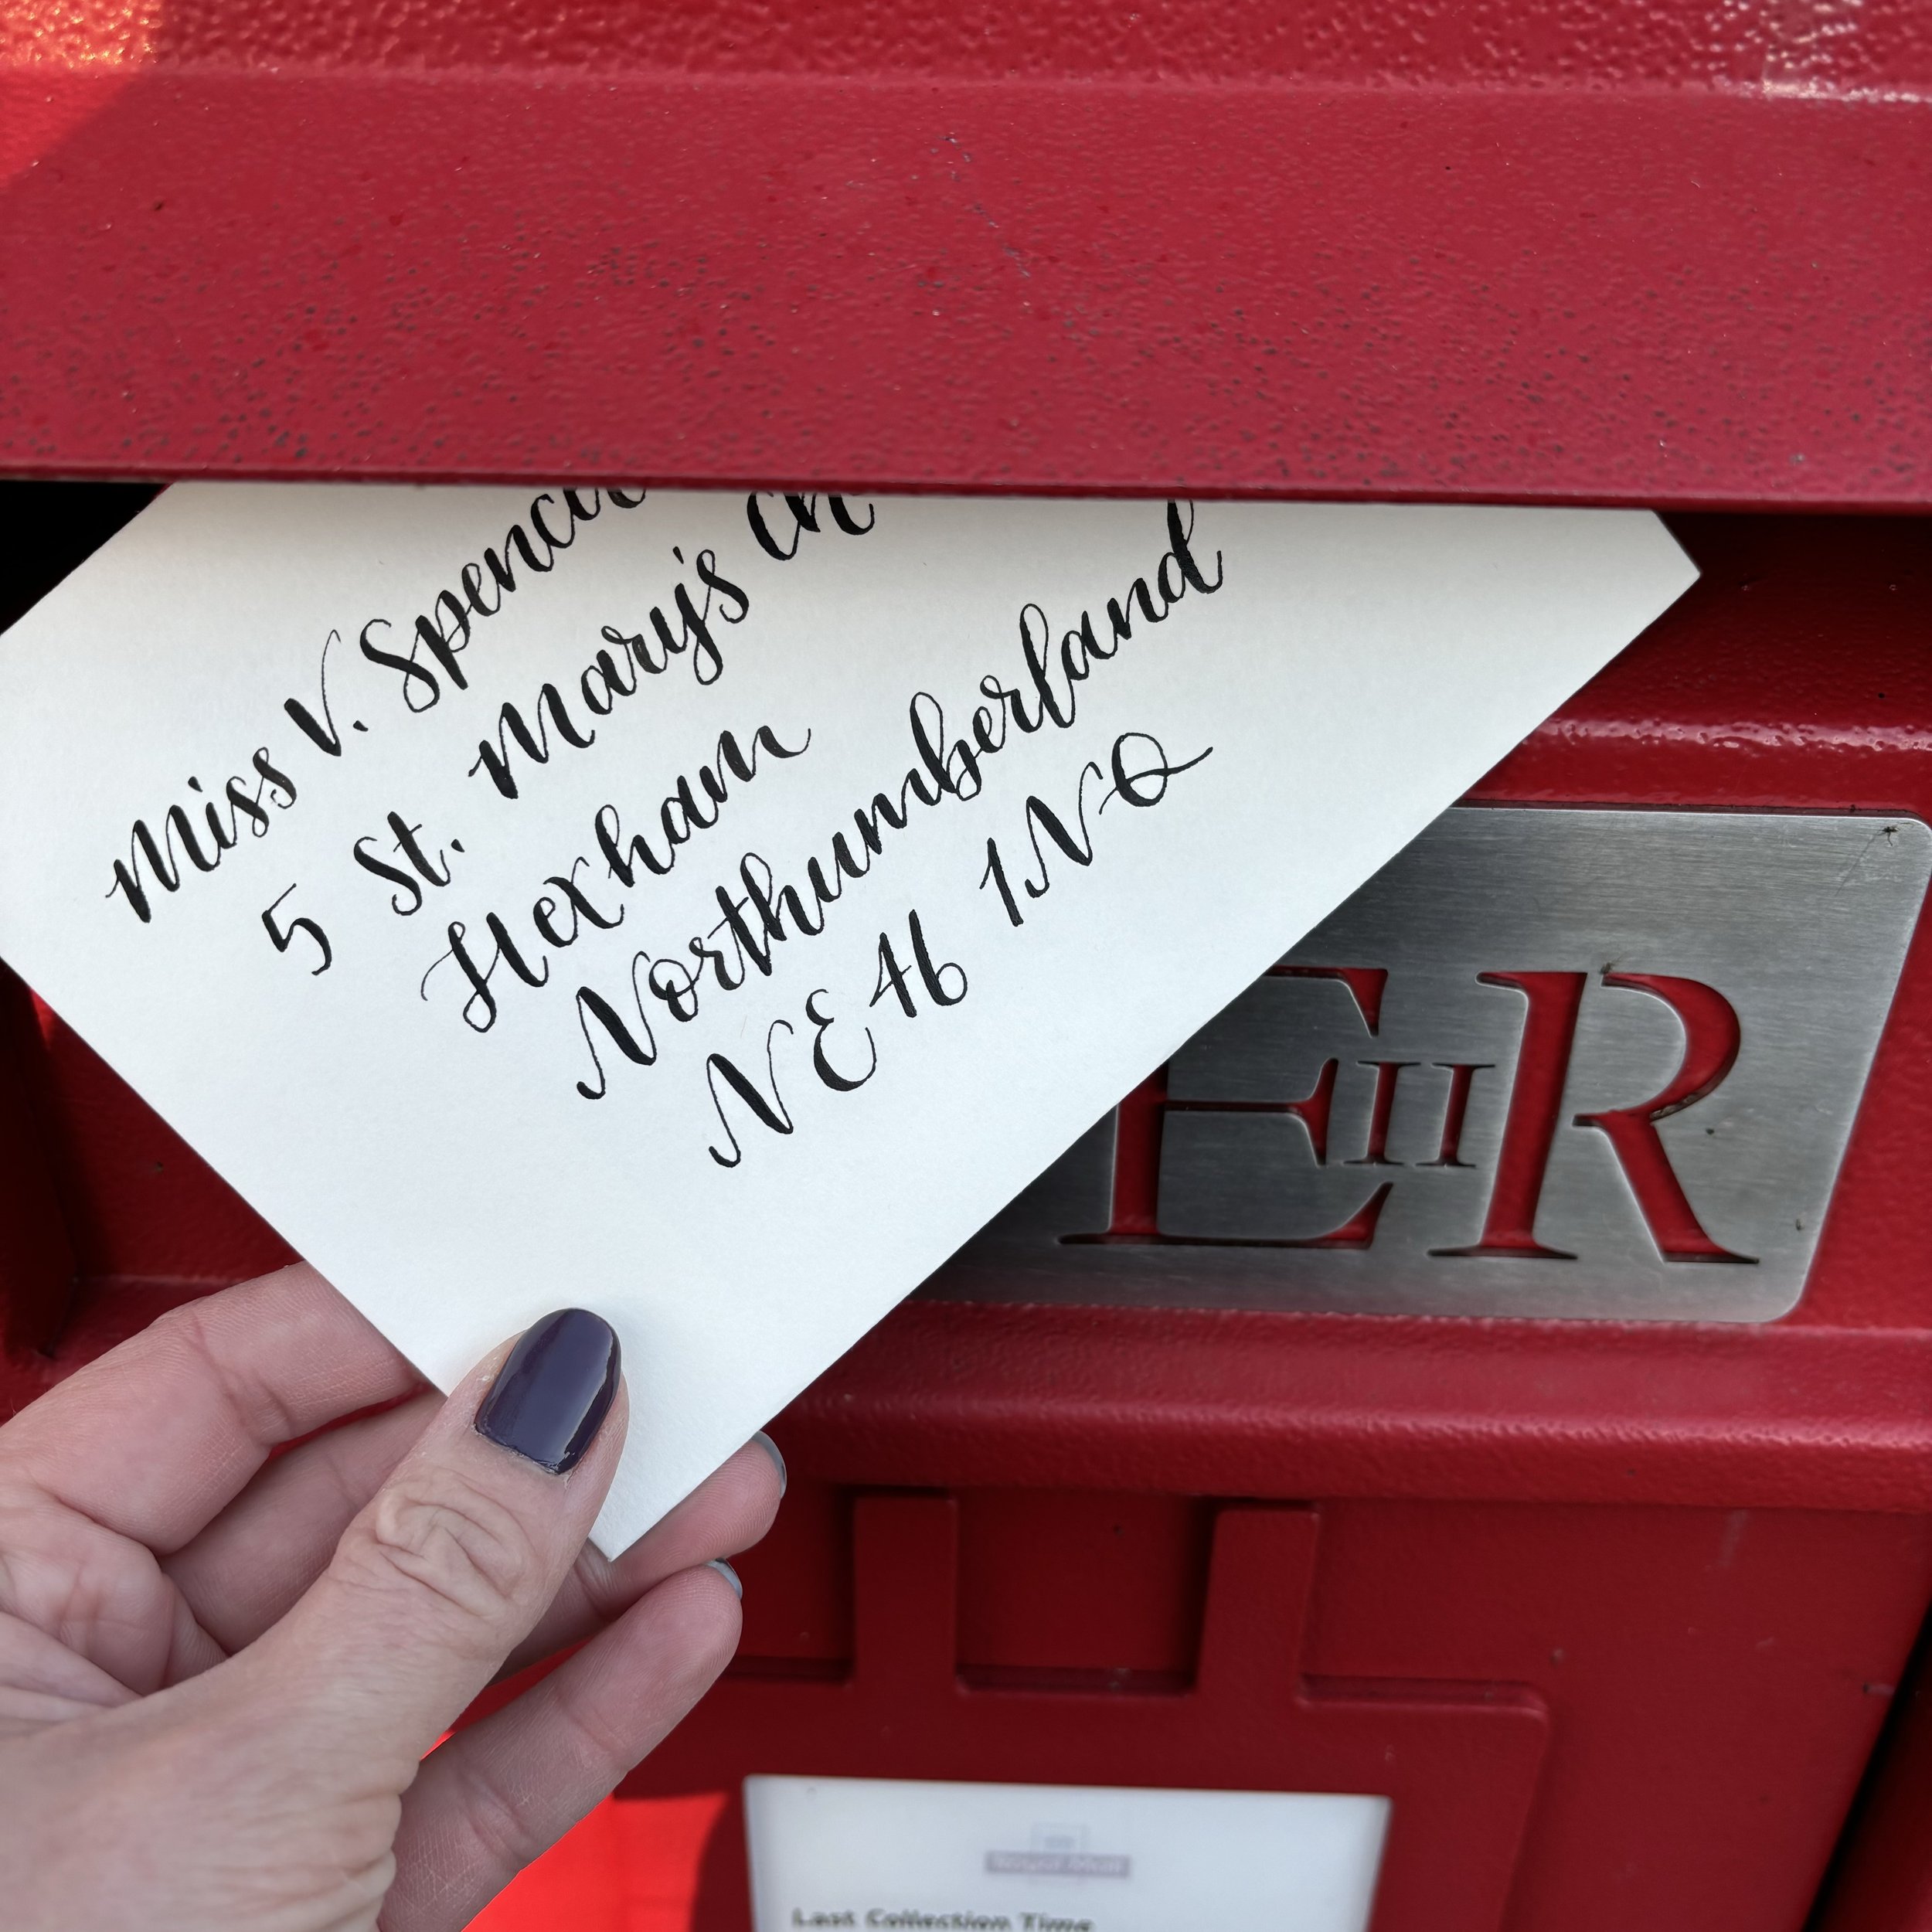 Miss V. Spence
5 St. Mary's Ch
Hexham
Northumberland
NE46 1NQ
EIIR
Royal Mail
Last Collection Time